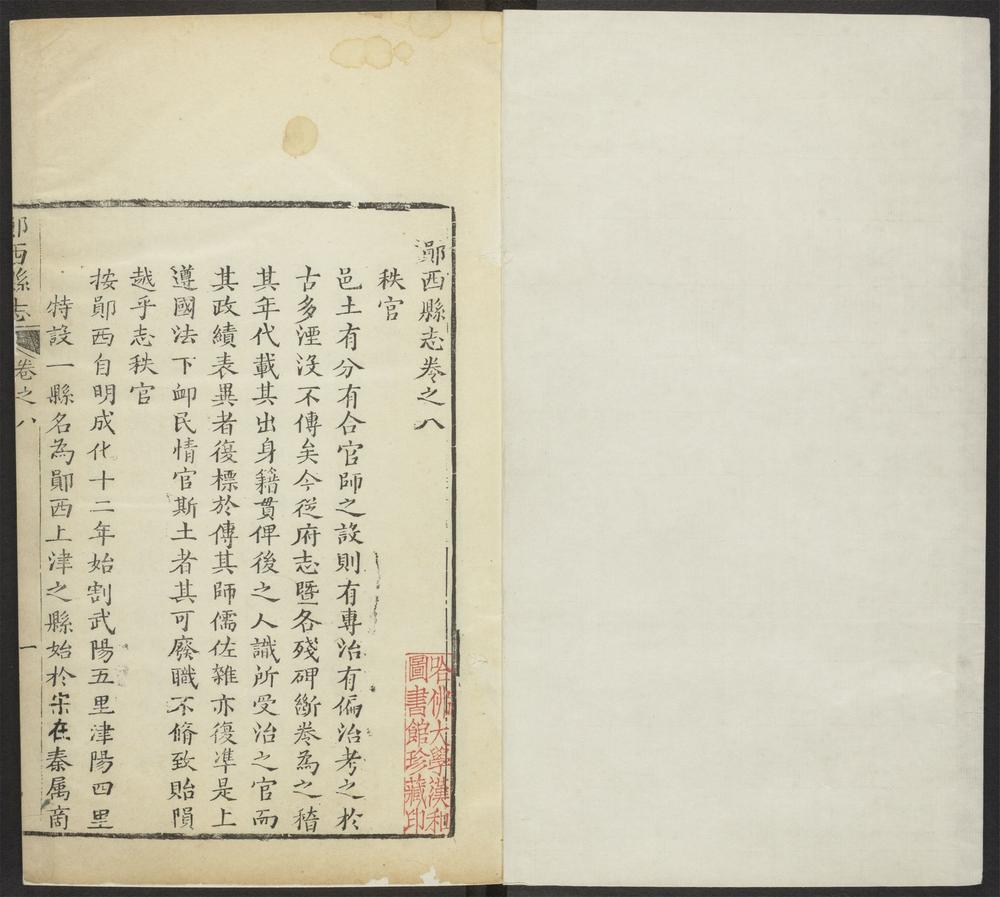 鄖西縣志卷之八
秩官
邑土有分有合官師之設則有專治有偏治考之於
古多湮沒不傳矣今從府志曁各殘碑斷卷為之稽
其年代載其出身籍貫俾後之人識所受治之官而
其政績表異者復標於傳其師儒佐雜亦復準是上
遵國法下卹民情官斯土者其可廢職不脩致貽隕
越乎志秩官
按鄖西自明成化十二年始割武陽五里津陽四里
特設一縣名為鄖西上津之縣始於宋在秦属商
鄖西縣志
卷之八
一
哈佛大學漢和
圖書館珍藏印